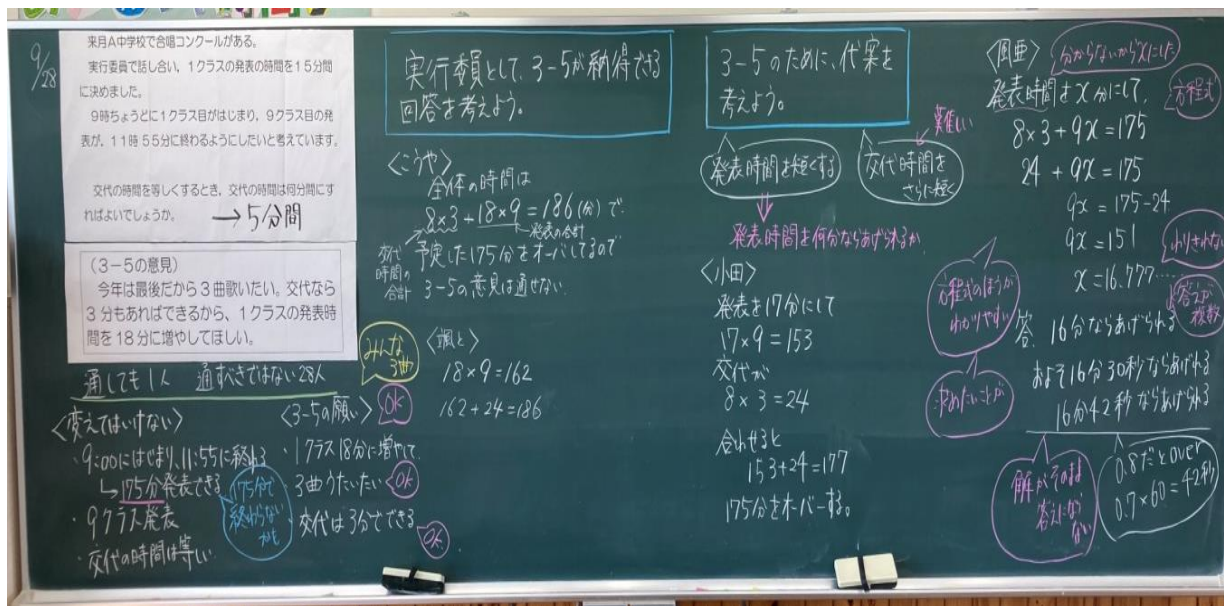 9/28
来月A中学校で合唱コンクールがある。
実行委員で話し合い、1クラスの発表の時間を15分間
に決めました。
9時ちょうどに1クラス目がはじまり、9クラス目の発
表が、11時55分に終わるようにしたいと考えています。
交代の時間を等しくするとき、交代の時間は何分間にす
ればよいでしょうか。
→5分間
(3-5の意見)
今年は最後だから3曲歌いたい。交代なら
3分もあればできるから、1クラスの発表時
間を18分に増やしてほしい。
通しても1人 通すべきではない28人
<変えてはいけない>
・9:00にはじまり、11:55に終わる
↳175分発表できる
・9クラス発表
・交代の時間は等しい
175分で
終わらない
かも
<3-5の願い>
・1クラス18分に増やして
3曲うたいたい
交代は3分でできる
みんな
3曲
OK
OK
OK
実行委員として、3-5が納得できる
回答を考えよう。
<こうや>
全体の時間は
8×3+18×9=186(分)で
発表の合計
交代
時間の
合計
予定した175分をオーバしてるので
3-5の意見は通せない
<颯と>
18×9=162
162+24=186
3-5のために、代案を
考えよう。
発表時間を短くする
難しい
交代時間を
さらに短く
発表時間を何分ならあげられるか
<小田>
発表を17分にして
17×9=153
交代が
8×3=24
合わせると
153+24=177
175分をオーバーする。
<風亜>
分からないからxにした
発表時間をx分にして、
方程式
8×3+9x=175
24+9x=175
9x=175-24
9x=151
x=16.777……
わりきれない
答えが
複数
方程式のほうが
わかりやすい
決めたいことが
答 16分ならあげられる
およそ16分30秒ならあげれる
16分42秒ならあげられる
解がそのまま
答えになら
ない
0.8だとover
0.7×60=42秒